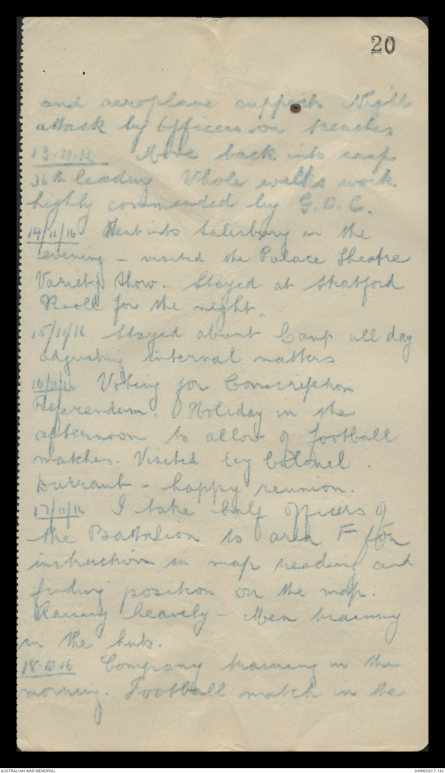 20
and aeroplane support. Night
attack by Officers on trenches
13.11.16 Move back into camp
36th leading. Whole weeks work
highly commended by G.O.C.
14/11/16 Went into Salisbury in the
evening - visited the Palace Theatre
Variety Show. Stayed at Stratford
Knoll for the night.
15/11/16 Stayed about Camp all day
adjusting internal matters
16/11/16 Voting for Conscription
Referendum. Holiday in the
afternoon to allow of football
matches. Visited by Colonel
Durrant - happy reunion.
17/11/16 I take only Officers of
the Battalion to area F for
instruction in map reading and
finding position on the map.
Raining heavily - Men training
in the huts.
18.10.16 Company training in the
morning. Football match in the
AUSTRALIAN WAR MEMORIAL